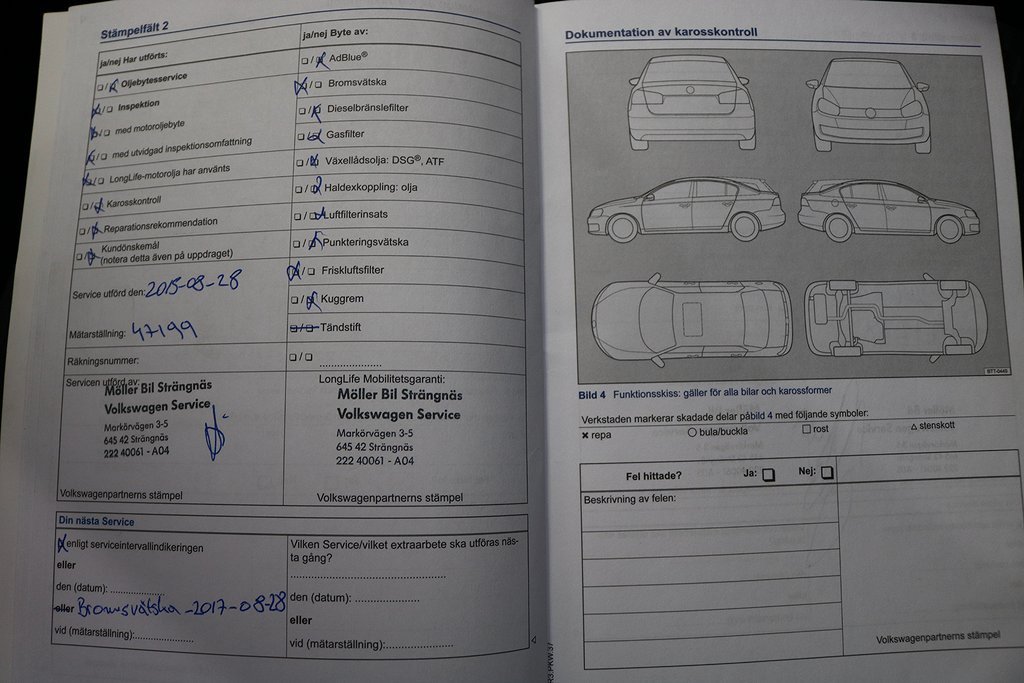 Stämpelfält 2
ja/nej Har utförts:
☐/☒ Oljebytesservice
☒/☐ Inspektion
☒/☐ med motoroljebyte
☒/☐ med utvidgad inspektionsomfattning
☒/☐ LongLife-motorolja har använts
☐/☒ Karosskontroll
☐/☒ Reparationsrekommendation
☐/☒ Kundönskemål
(notera detta även på uppdraget)
Service utförd den: 2015-08-28
Mätarställning: 47199
Räkningsnummer:
Servicen utförd av:
Möller Bil Strängnäs
Volkswagen Service
Markörvägen 3-5
645 42 Strängnäs
222 40061 - A04
Volkswagenpartnerns stämpel
ja/nej Byte av:
☐/☒ AdBlue®
☒/☐ Bromsvätska
☐/☒ Dieselbränslefilter
☐/☒ Gasfilter
☐/☒ Växellådsolja: DSG®, ATF
☐/☒ Haldexkoppling: olja
☐/☒ Luftfilterinsats
☐/☒ Punkteringsvätska
☒/☐ Friskluftsfilter
☐/☒ Kuggrem
☐/☐ Tändstift
☐/☐ ....................
LongLife Mobilitetsgaranti:
Möller Bil Strängnäs
Volkswagen Service
Markörvägen 3-5
645 42 Strängnäs
222 40061 - A04
Volkswagenpartnerns stämpel
Din nästa Service
☒ enligt serviceintervallindikeringen
eller
den (datum): ....................
eller Bromsvätska -2017-08-28
vid (mätarställning):....................
Vilken Service/vilket extraarbete ska utföras näs-
ta gång?
..................................................
den (datum): ....................
eller
vid (mätarställning):....................
4
R3.PKW.37
Dokumentation av karosskontroll
BTT-0449
Bild 4 Funktionsskiss: gäller för alla bilar och karossformer
Verkstaden markerar skadade delar påbild 4 med följande symboler:
✖ repa ○ bula/buckla □ rost △ stenskott
Fel hittade? Ja: ☐ Nej: ☐
Beskrivning av felen:
Volkswagenpartnerns stämpel